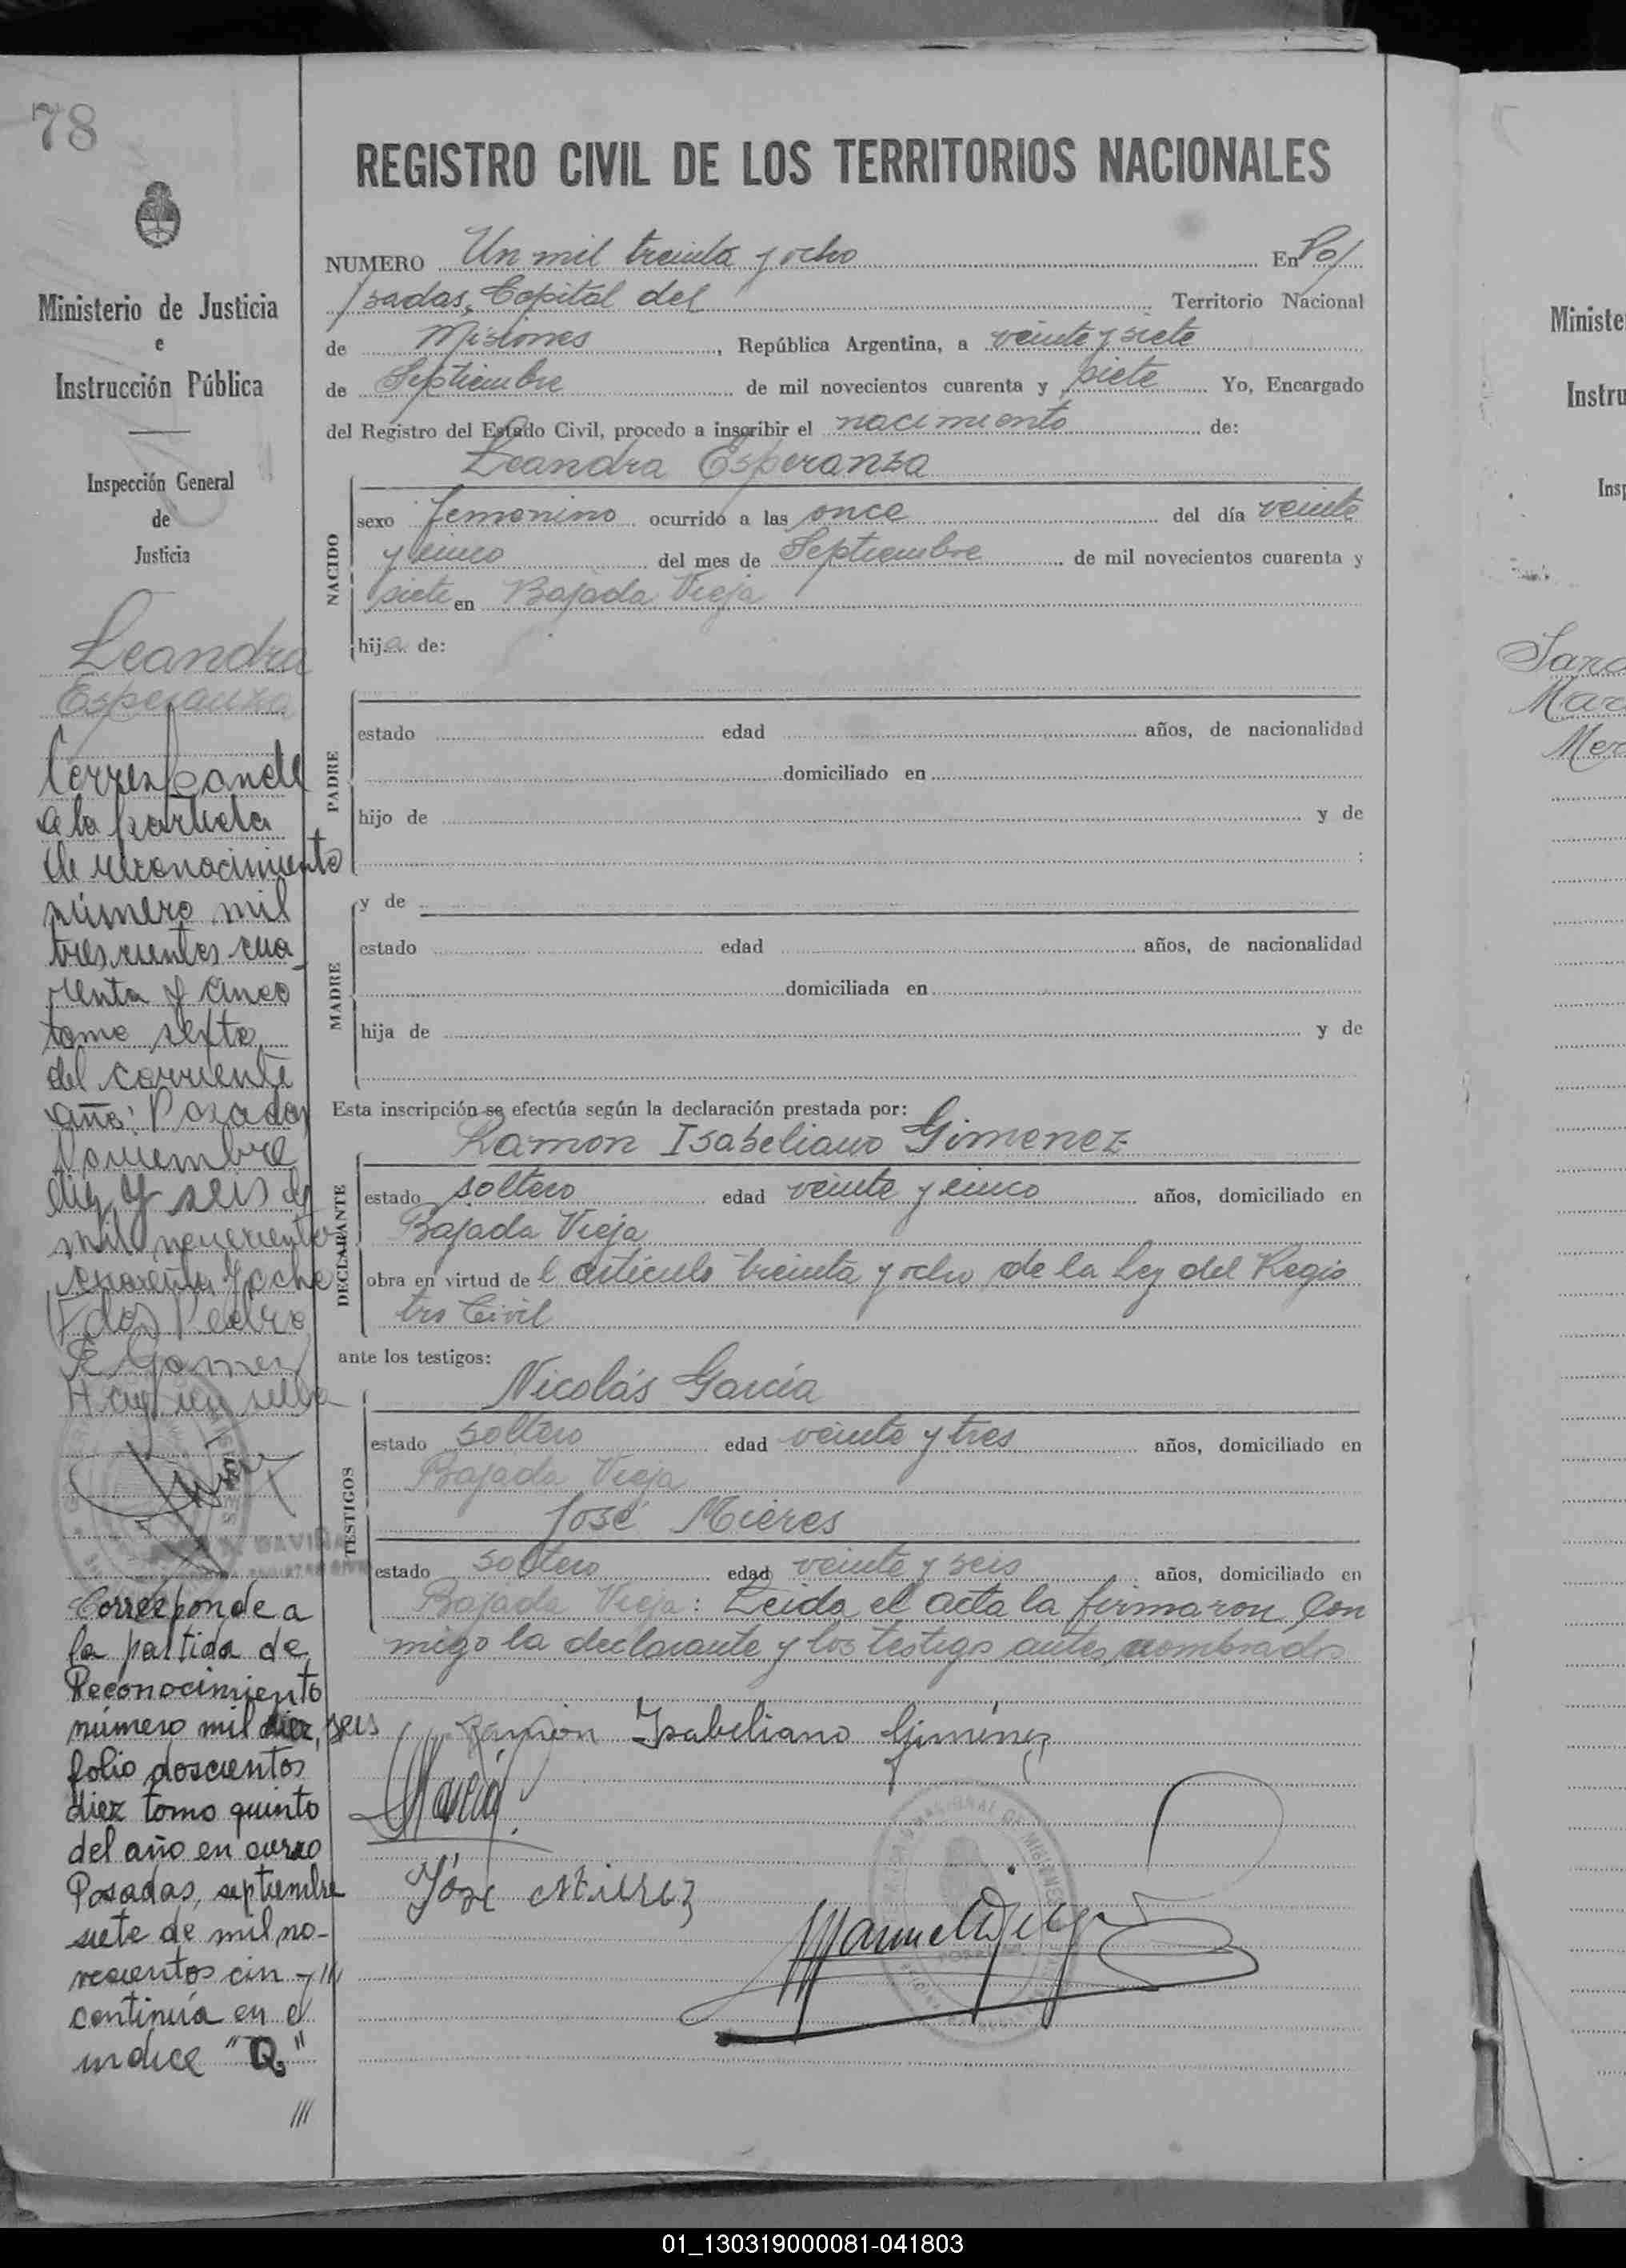 78
Ministerio de Justicia
e
Instrucción Pública
Inspección General
de
Justicia
Leandra
Esperanza
Corresponde
a la partida
de reconocimiento
número mil
trescientos cua
renta y cinco
tomo sexto
del corriente
año: Posadas
Noviembre
diez y seis de
mil novecientos
cuarenta y ocho
Pedro
Gomez
Corresponde a
la partida de
Reconocimiento
número mil diez, seis
folio doscientos
diez tomo quinto
del año en curso
Posadas, septiembre
siete de mil no-
vecientos cin -///
continúa en el
indice "Q"
///
REGISTRO CIVIL DE LOS TERRITORIOS NACIONALES
NUMERO Un mil treinta y ocho En Po/
/sadas, Capital del Territorio Nacional
de Misiones, República Argentina, a veinte y siete
de Septiembre de mil novecientos cuarenta y siete Yo, Encargado
del Registro del Estado Civil, procedo a inscribir el nacimiento de:
Leandra Esperanza
NACIDO
sexo femenino ocurrido a las once del día veinte
y cinco del mes de Septiembre de mil novecientos cuarenta y
siete en Bajada Vieja
hija de:
PADRE
estado edad años, de nacionalidad
domiciliado en
hijo de y de
;
y de
MADRE
estado edad años, de nacionalidad
domiciliada en
hija de y de
Esta inscripción se efectúa según la declaración prestada por:
Ramon Isabeliano Gimenez
DECLARANTE
estado soltero edad veinte y cinco años, domiciliado en
Bajada Vieja
obra en virtud de l artículo treinta y ocho de la Ley del Regis
tro Civil
ante los testigos:
Nicolás García
TESTIGOS
estado soltero edad veinte y tres años, domiciliado en
Bajada Vieja
José Mieres
estado soltero edad veinte y seis años, domiciliado en
Bajada Vieja: Leida el acta la firmaron con
migo la declarante y los testigos antes nombrados
Ramón Isabeliano Giménez
García
José Mierez
Ministe
Instru
Insp
Mar
01_130319000081-041803